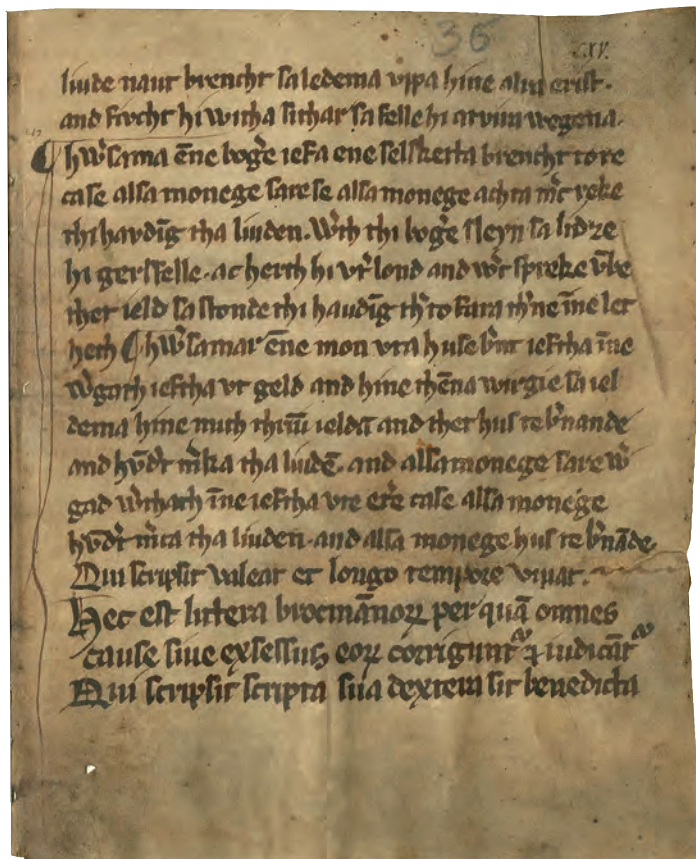 36
CXV.
liude naut brencht sa ledema vppa hine alru erist.
and fivcht hi witha sithar sa felle hi at vium wegena.
hẘsama ēne boḡe iefa ene selsketta brencht to re
case alsa monege sare se alsa monege achta m̄c reke
thi havdīg tha liuden. Wᵉth thi boḡe sleyn sa lidze
hi gersfelle. ac herth hi vr̄ lond and wᵉr spreke v̄be
ther ield sa stonde thi haudīg th̄ to fara th̄ne īne let
heth hẘsamar ēne mon vta huse b̄nt ieftha īne
w̄gath ieftha vt geld and hine thēna wirgie sa iel
dema hine mith thriū ieldū and ther hus te b̄nande
and hv̄dr̄ m̄ka tha liudē. and alsa monege sare w̄
gad w̄thath īne ieftha vte ēre case alsa monege
hv̄dr̄ m̄ca tha liuden. and alsa monege hus te b̄nāde.
Qui scripsit valeat et longo tempore viuat.
Hec est littera brocmānoꝝ per quā omnes
cause siue exsessus eoꝝ corrigunt᷑ ⁊ iudicāt᷑
Qui scripsit scripta sua dextera sit benedicta